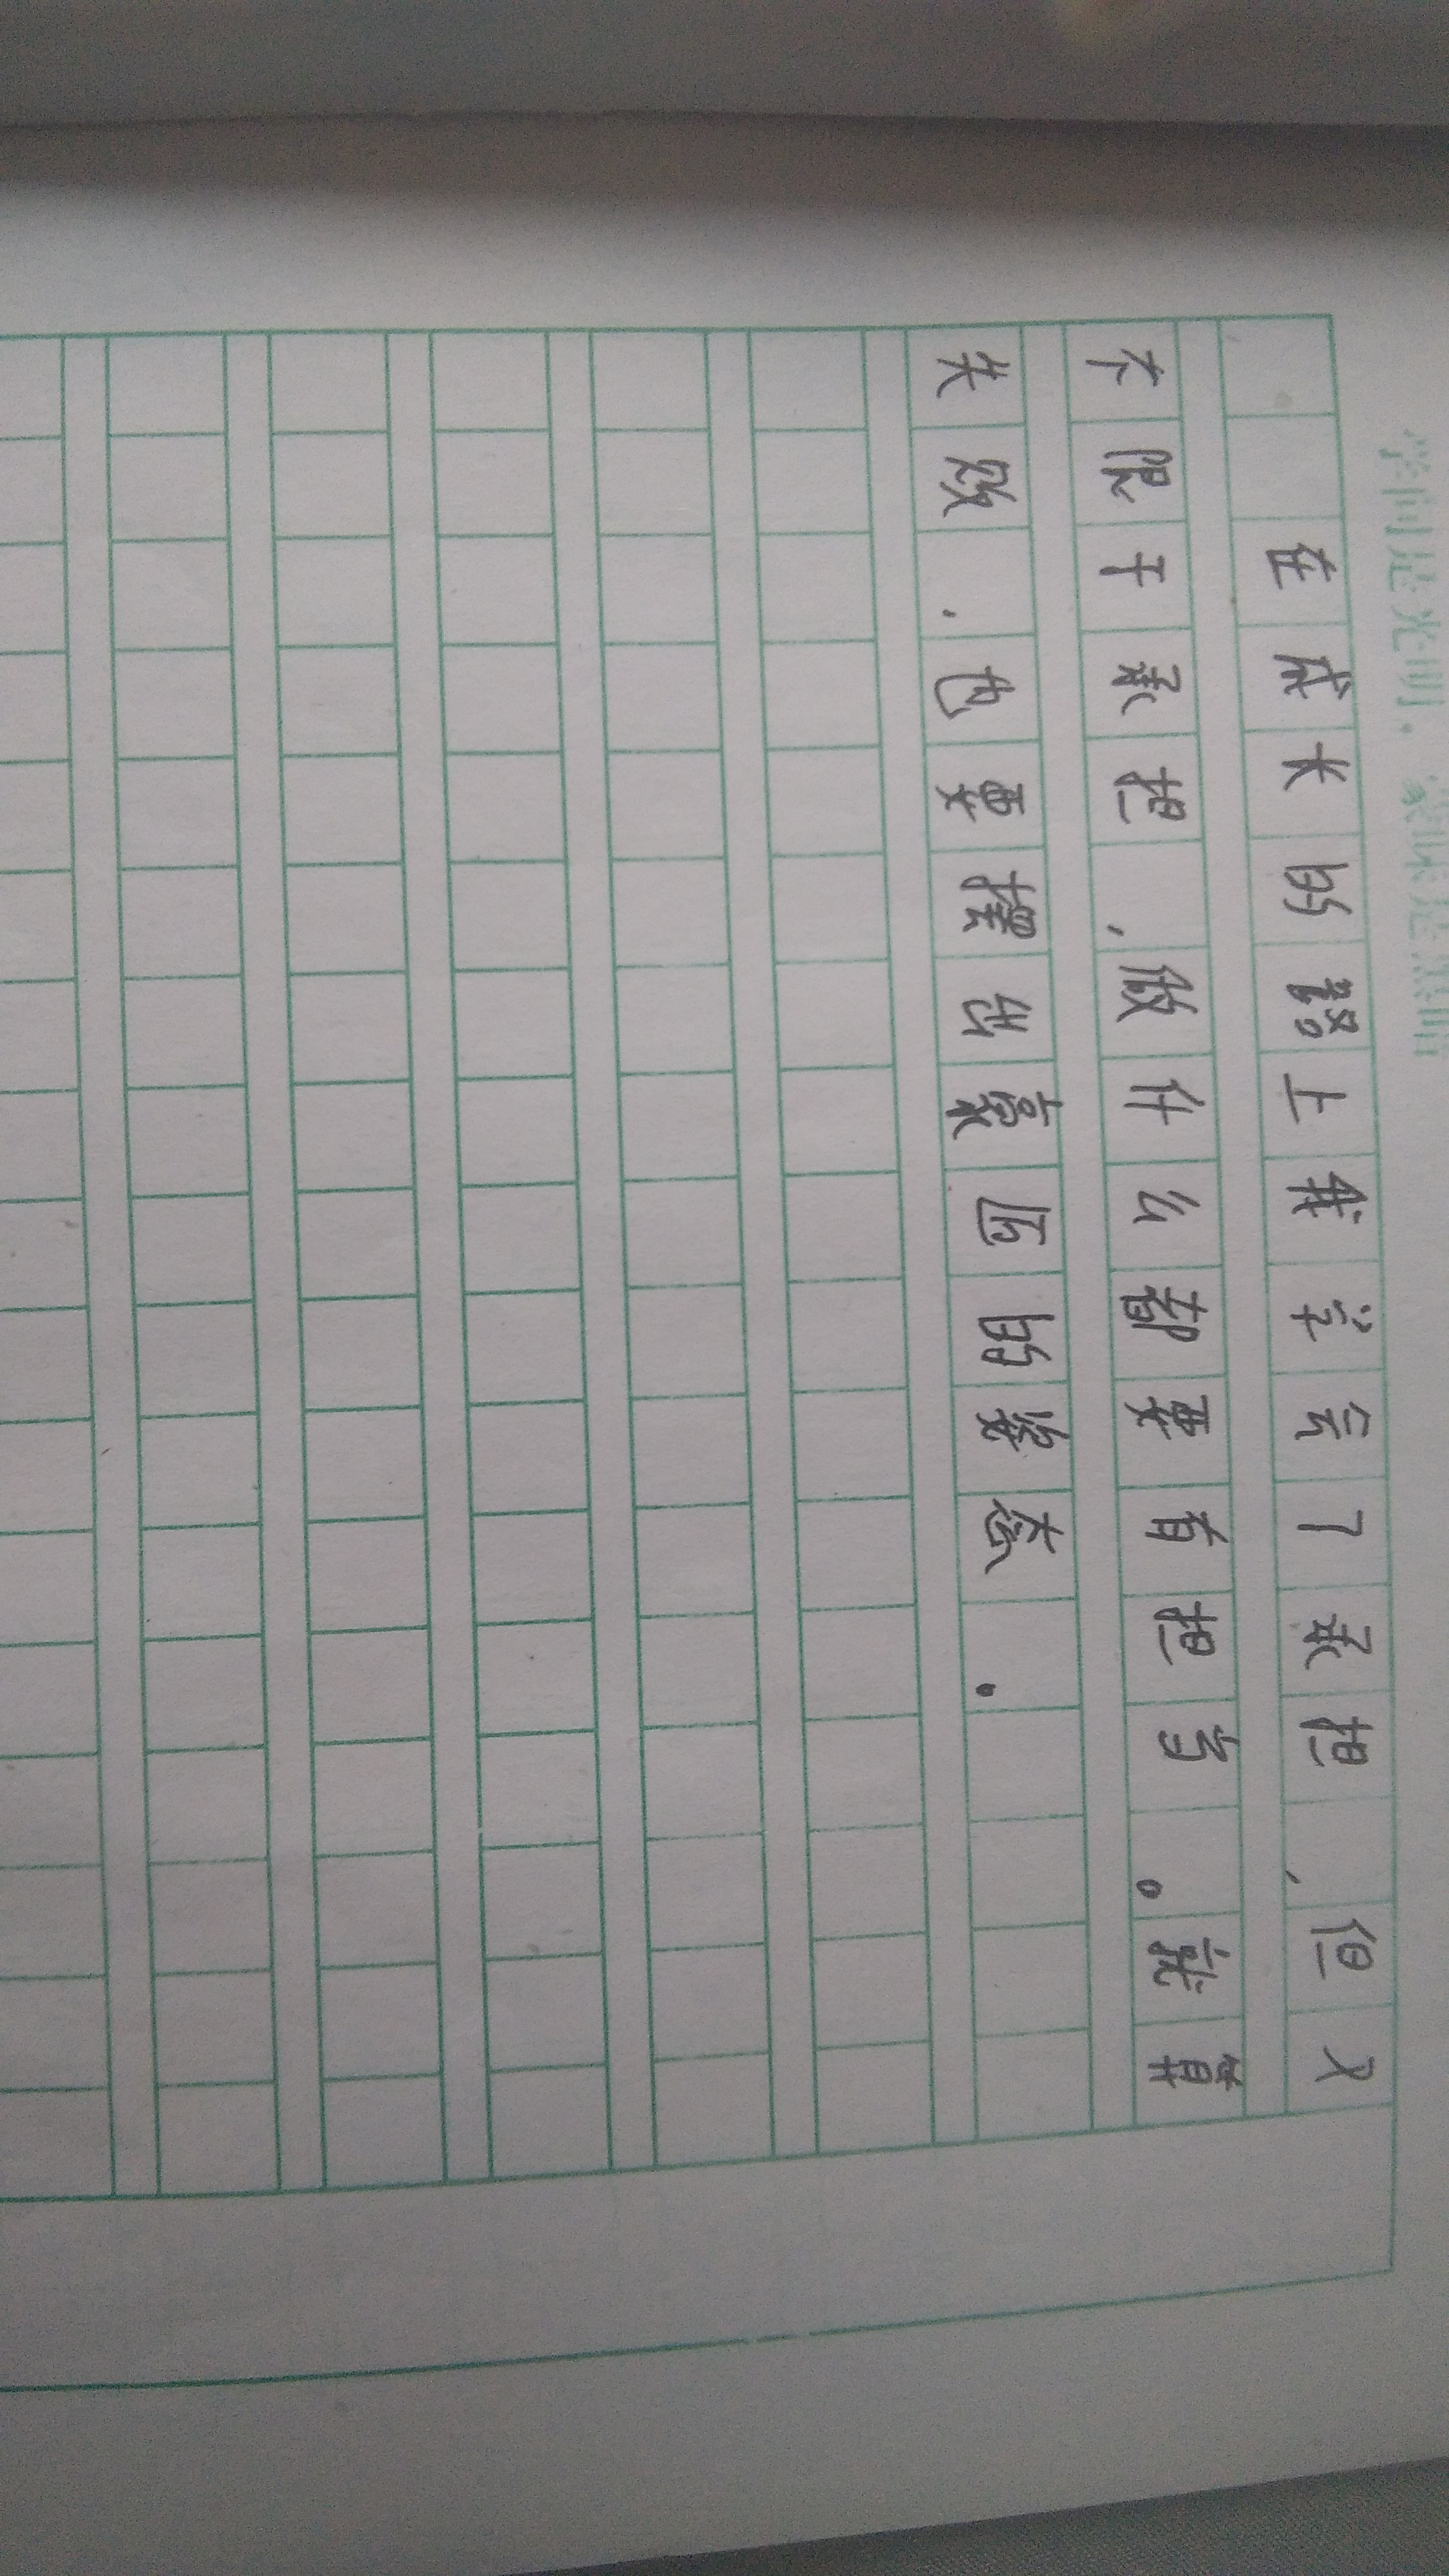 学问是光明，蒙昧是黑暗
在成长的路上我学会了承担，但又
不限于承担，做什么都要有担当。就算
失败，也要摆出豪迈的姿态。